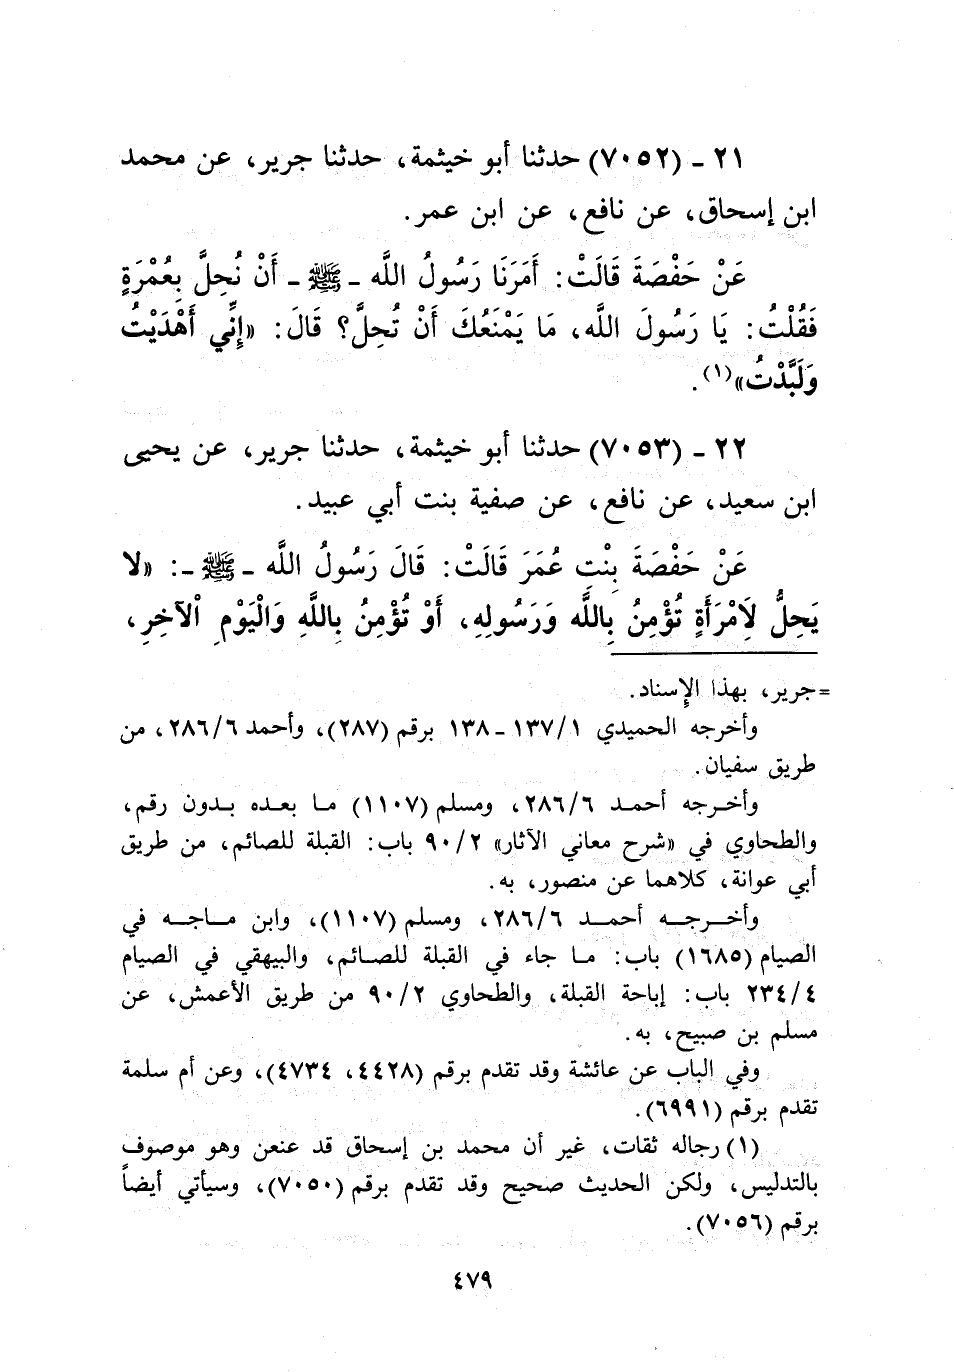 ٢١ - (٧٠٥٢) حدثنا أبو خيثمة، حدثنا جرير، عن محمد
ابن إسحاق، عن نافع، عن ابن عمر.
عَنْ حَفْصَةَ قَالَتْ: أَمَرَنَا رَسُولُ اللَّه - ﷺ - أَنْ نُحِلَّ بِعُمْرَةٍ
فَقُلْتُ: يَا رَسُولَ اللَّه، مَا يَمْنَعُكَ أَنْ تُحِلَّ؟ قَالَ: «إِنِّي أَهْدَيْتُ
وَلَبَّدْتُ»(١).
٢٢ - (٧٠٥٣) حدثنا أبو خيثمة، حدثنا جرير، عن يحيى
ابن سعيد، عن نافع، عن صفية بنت أبي عبيد.
عَنْ حَفْصَةَ بِنْتِ عُمَرَ قَالَتْ: قَالَ رَسُولُ اللَّه - ﷺ -: «لا
يَحِلُّ لَامْرَأَةٍ تُؤْمِنُ بِاللَّه وَرَسُولِهِ، أَوْ تُؤْمِنُ بِاللَّهِ وَالْيَوْمِ الْآخِرِ،
=جرير، بهذا الإسناد.
وأخرجه الحميدي ١/١٣٧ - ١٣٨ برقم (٢٨٧)، وأحمد ٢٨٦/٦، من
طريق سفيان.
وأخرجه أحمد ٢٨٦/٦، ومسلم (١١٠٧) ما بعده بدون رقم،
والطحاوي في «شرح معاني الآثار» ٩٠/٢ باب: القبلة للصائم، من طريق
أبي عوانة، كلاهما عن منصور، به.
وأخرجه أحمد ٢٨٦/٦، ومسلم (١١٠٧)، وابن ماجه في
الصيام (١٦٨٥) باب: ما جاء في القبلة للصائم، والبيهقي في الصيام
٢٣٤/٤ باب: إباحة القبلة، والطحاوي ٩٠/٢ من طريق الأعمش، عن
مسلم بن صبيح، به.
وفي الباب عن عائشة وقد تقدم برقم (٤٤٢٨، ٤٧٣٤)، وعن أم سلمة
تقدم برقم (٦٩٩١).
(١) رجاله ثقات، غير أن محمد بن إسحاق قد عنعن وهو موصوف
بالتدليس، ولكن الحديث صحيح وقد تقدم برقم (٧٠٥٠)، وسيأتي أيضاً
برقم (٧٠٥٦).
٤٧٩